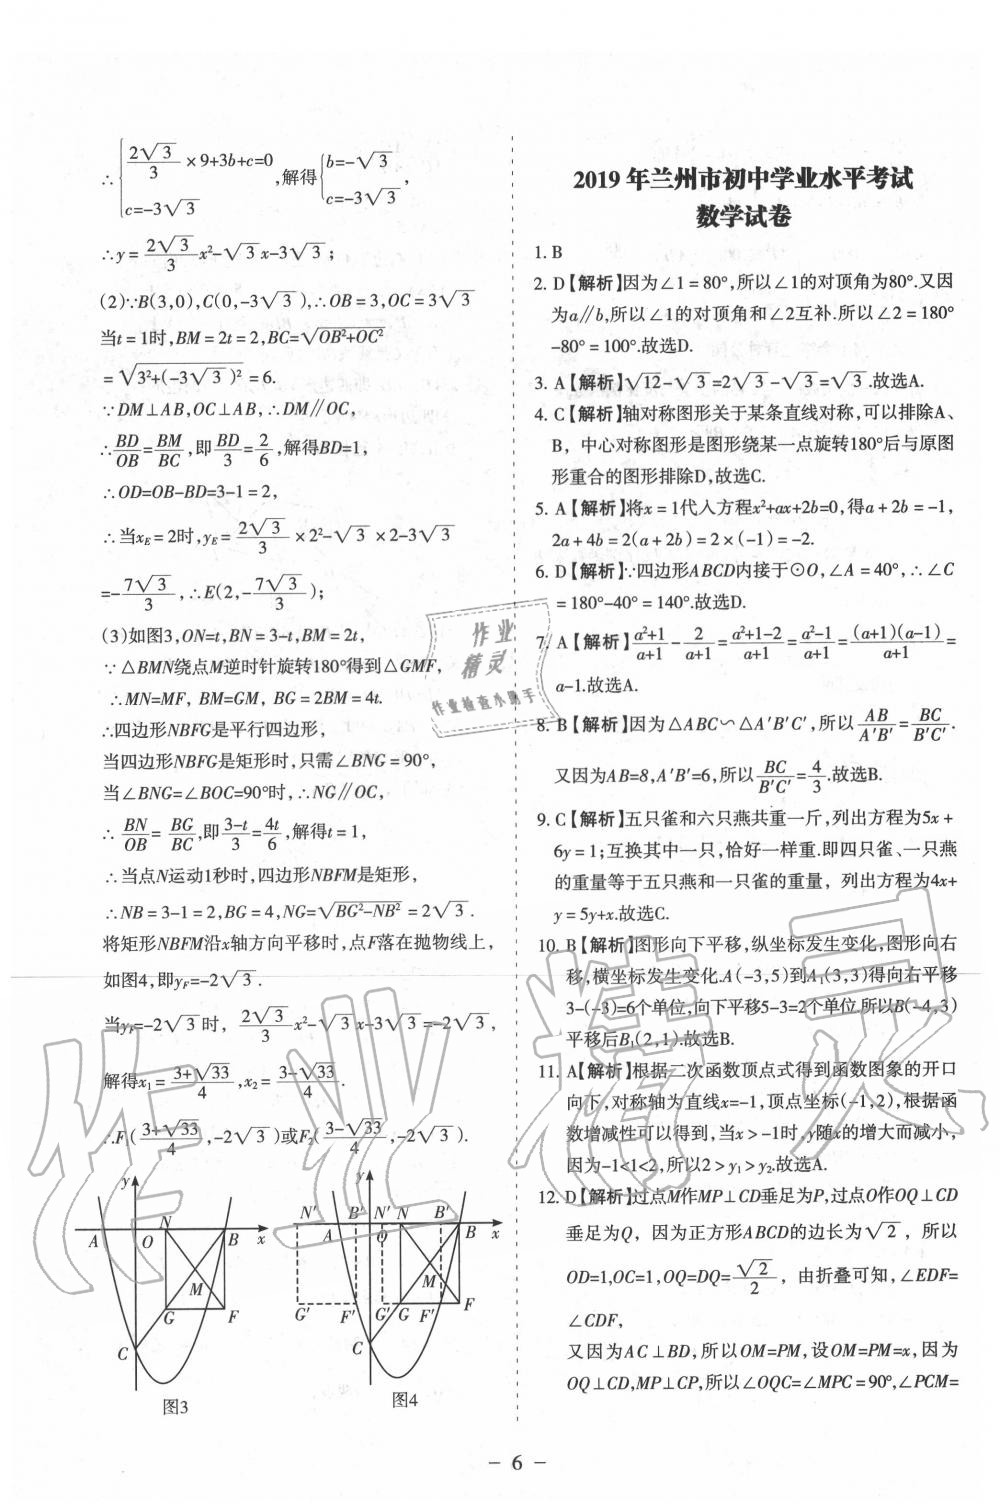 ∴{2√3/3×9+3b+c=0
c=-3√3 ,解得{b=-√3
c=-3√3 ,
∴y=2√3/3 x²-√3x-3√3;
(2)∵B(3,0),C(0,-3√3),∴OB=3,OC=3√3
当t=1时,BM=2t=2,BC=√(OB²+OC²)
=√(3²+(-3√3)²)=6.
∵DM⊥AB,OC⊥AB,∴DM∥OC,
∴BD/OB=BM/BC,即BD/3=2/6,解得BD=1,
∴OD=OB-BD=3-1=2,
∴当x_E=2时,y_E=2√3/3×2²-√3×2-3√3
=-7√3/3,∴E(2,-7√3/3);
(3)如图3,ON=t,BN=3-t,BM=2t,
∵△BMN绕点M逆时针旋转180°得到△GMF,
∴MN=MF, BM=GM, BG=2BM=4t.
∴四边形NBFG是平行四边形,
当四边形NBFG是矩形时,只需∠BNG=90°,
当∠BNG=∠BOC=90°时,∴NG∥OC,
∴BN/OB=BG/BC,即3-t/3=4t/6,解得t=1,
∴当点N运动1秒时,四边形NBFM是矩形,
∴NB=3-1=2,BG=4,NG=√(BG²-NB²)=2√3.
将矩形NBFM沿x轴方向平移时,点F落在抛物线上,
如图4,即y_F=-2√3.
当y_F=-2√3时, 2√3/3 x²-√3x-3√3=-2√3,
解得x₁=3+√33/4,x₂=3-√33/4.
∴F₁(3+√33/4,-2√3)或F₂(3-√33/4,-2√3).
y
A O N B x
M
G F
C
图3
y
N' A B' N' O N B' B x
M
G' F' G' G F' F
C
图4
2019年兰州市初中学业水平考试
数学试卷
1. B
2. D【解析】因为∠1=80°,所以∠1的对顶角为80°.又因
为a∥b,所以∠1的对顶角和∠2互补.所以∠2=180°
-80°=100°.故选D.
3. A【解析】√12-√3=2√3-√3=√3.故选A.
4. C【解析】轴对称图形关于某条直线对称,可以排除A、
B, 中心对称图形是图形绕某一点旋转180°后与原图
形重合的图形排除D,故选C.
5. A【解析】将x=1代入方程x²+ax+2b=0,得a+2b=-1,
2a+4b=2(a+2b)=2×(-1)=-2.
6. D【解析】∵四边形ABCD内接于⊙O,∠A=40°,∴∠C
=180°-40°=140°.故选D.
7. A【解析】a²+1/a+1-2/a+1=a²+1-2/a+1=a²-1/a+1=(a+1)(a-1)/a+1=
a-1.故选A.
8. B【解析】因为△ABC∽△A'B'C',所以AB/A'B'=BC/B'C'.
又因为AB=8,A'B'=6,所以BC/B'C'=4/3.故选B.
9. C【解析】五只雀和六只燕共重一斤,列出方程为5x+
6y=1;互换其中一只,恰好一样重.即四只雀、一只燕
的重量等于五只燕和一只雀的重量, 列出方程为4x+
y=5y+x.故选C.
10. B【解析】图形向下平移,纵坐标发生变化,图形向右
移,横坐标发生变化.A(-3,5)到A₁(3,3)得向右平移
3-(-3)=6个单位,向下平移5-3=2个单位.所以B(-4,3)
平移后B₁(2,1).故选B.
11. A【解析】根据二次函数顶点式得到函数图象的开口
向下,对称轴为直线x=-1,顶点坐标(-1,2),根据函
数增减性可以得到,当x>-1时.y随x的增大而减小,
因为-1<1<2,所以2>y₁>y₂.故选A.
12. D【解析】过点M作MP⊥CD垂足为P,过点O作OQ⊥CD
垂足为Q, 因为正方形ABCD的边长为√2, 所以
OD=1,OC=1,OQ=DQ=√2/2, 由折叠可知,∠EDF=
∠CDF,
又因为AC⊥BD,所以OM=PM,设OM=PM=x,因为
OQ⊥CD,MP⊥CP,所以∠OQC=∠MPC=90°,∠PCM=
作业
精灵
作业检查小助手
作业精灵
- 6 -